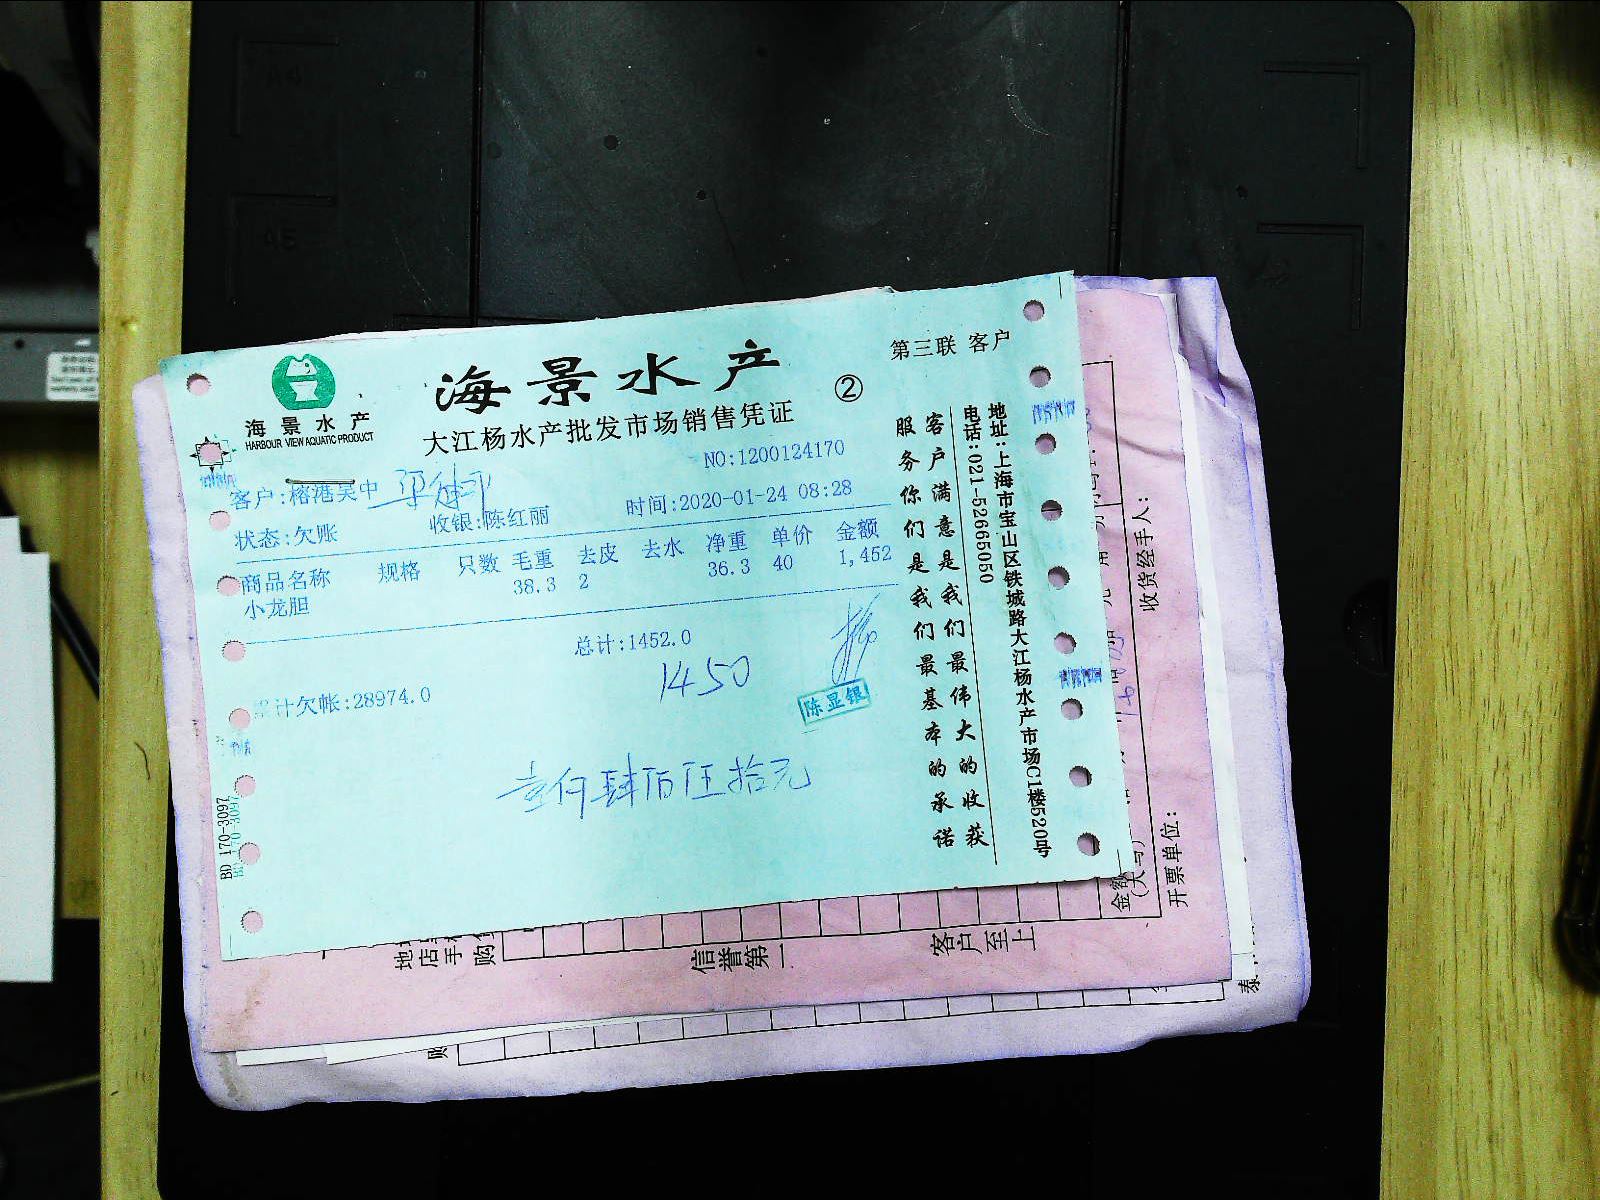 A4
A5
海景水产
HARBOUR VIEW AQUATIC PRODUCT
海景水产
②
第三联 客户
大江杨水产批发市场销售凭证
NO:1200124170
客户:榕港吴中
状态:欠账
收银:陈红丽
时间:2020-01-24 08:28
商品名称 规格 只数 毛重 去皮 去水 净重 单价 金额
小龙胆 38.3 2 36.3 40 1,452
总计:1452.0
1450
计欠帐:28974.0
陈显银
壹仟肆佰伍拾元
客户满意是我们最伟大的收获
服务你们是我们最基本的承诺
地址:上海市宝山区铁城路大江杨水产市场C1楼520号
电话:021-52665050
BD 170-3097
BD 170-3097
收货经手人:
开票单位:
金额
(大写)
信誉第一
客户至上
地
店
手
购
购
泰